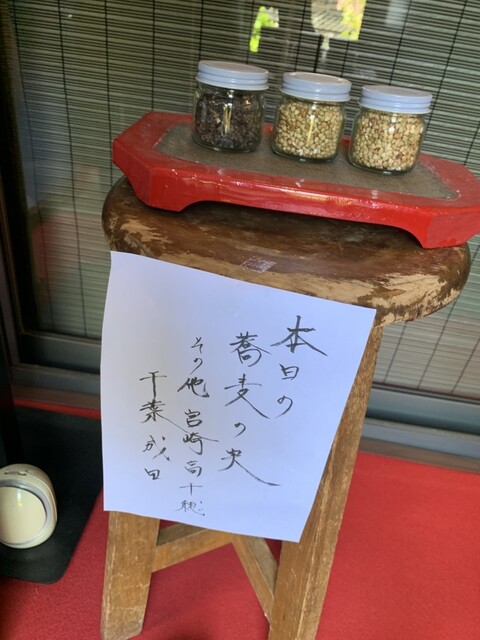 本日の
蕎麦の実
その他 宮崎高千穂
千葉成田